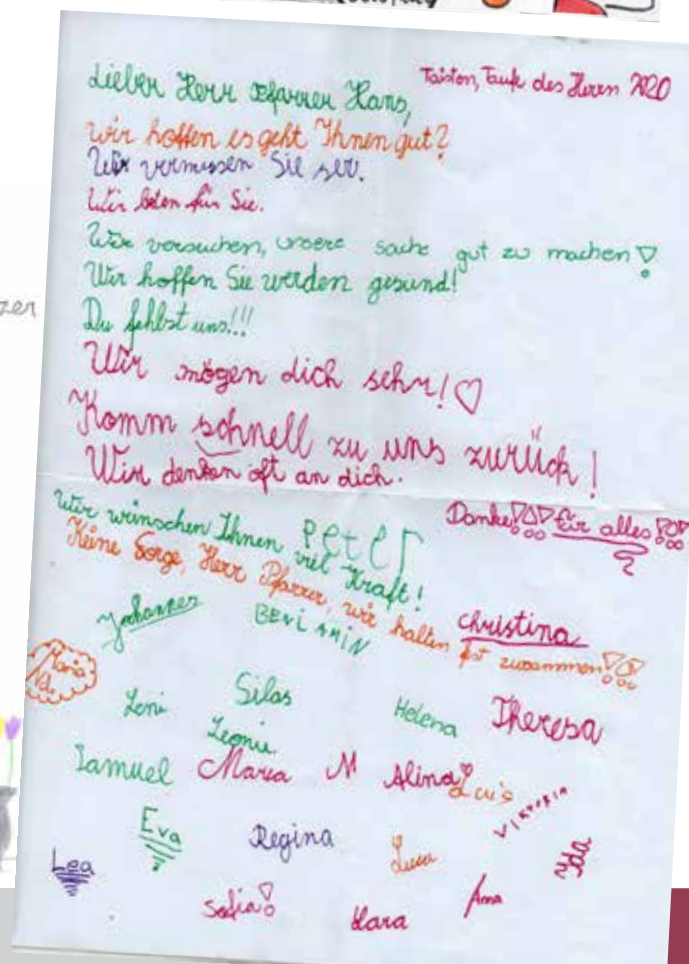 Taisten, Taufe des Herrn 2020
Lieber Herr Pfarrer Hans,
wir hoffen es geht Ihnen gut?
Wir vermissen Sie ser.
Wir beten für Sie.
Wir versuchen, unsere sache gut zu machen!
Wir hoffen Sie werden gesund!
Du fehlst uns!!!
Wir mögen dich sehr!♡
Komm schnell zu uns zurück!
Wir denken oft an dich.
Danke!!! für alles!!!
Wir winschen Ihnen viel Kraft!
Peter
Keine Sorge, Herr Pfarrer, wir halten fest zusammen!!!
Johannes
BENiAMiN
christina
Maria
Leni
Silas
Helena
Theresa
Leonie
Samuel
Maria M
Alina!
Luis
Viktoria
Eva
Regina
Luca
Ida
Lea
Sofia!
Klara
Anna